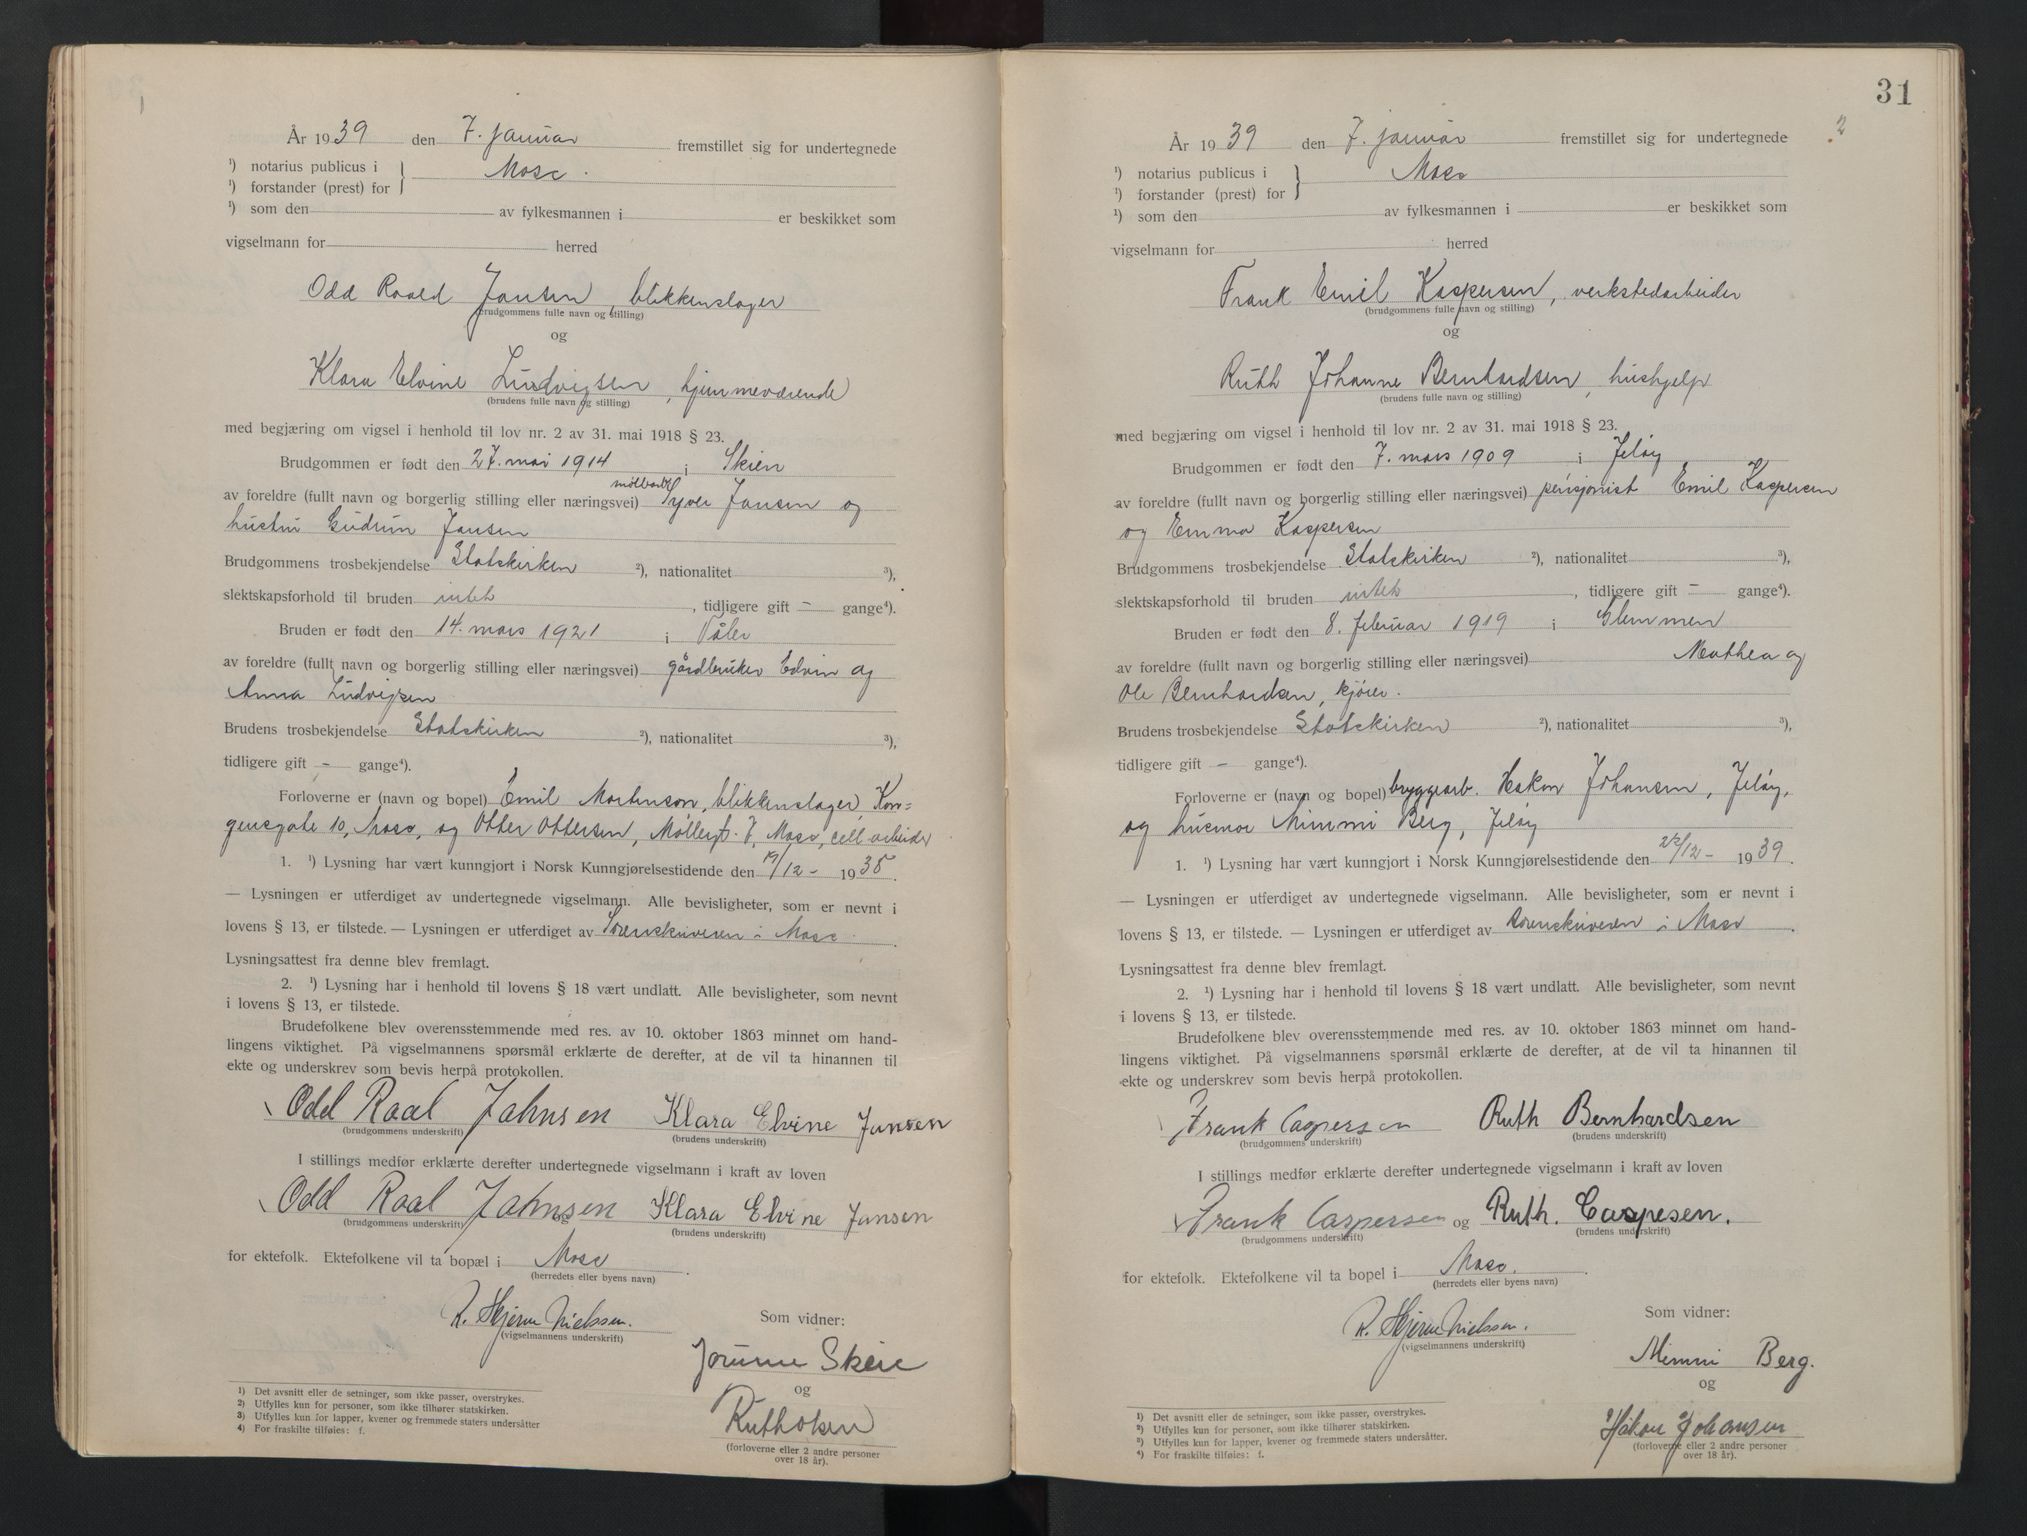 1
År 1939 den 7. januar fremstillet sig for undertegnede
¹) notarius publicus i } Moss.
¹) forstander (prest) for
¹) som den av fylkesmannen i er beskikket som
vigselmann for herred
Odd Roald Jansen, blikkenslager
(brudgommens fulle navn og stilling)
og
Klara Elvine Ludvigsen, hjemmeværende
(brudens fulle navn og stilling)
med begjæring om vigsel i henhold til lov nr. 2 av 31. mai 1918 § 23.
Brudgommen er født den 27. mai 1914 i Skien
av foreldre (fullt navn og borgerlig stilling eller næringsvei) Syver Jansen og
hustru Gudrun Jansen
Brudgommens trosbekjendelse Statskirken ²), nationalitet ³),
slektskapsforhold til bruden intet, tidligere gift — gange⁴).
Bruden er født den 14. mars 1921 i Våler
av foreldre (fullt navn og borgerlig stilling eller næringsvei) gårdbruker Edvin og
Anna Ludvigsen
Brudens trosbekjendelse Statskirken ²), nationalitet ³),
tidligere gift — gange⁴).
Forloverne er (navn og bopel) Emil Mortenson, blikkenslager, Kon=
gensgate 10, Moss, og Otter Ottersen, Møllergt. 7, Moss, cell.arbeider
1. ¹) Lysning har vært kunngjort i Norsk Kunngjørelsestidende den 19/12- 1938.
— Lysningen er utferdiget av undertegnede vigselmann. Alle bevisligheter, som er nevnt i
lovens § 13, er tilstede. — Lysningen er utferdiget av Sorenskriveren i Moss.
Lysningsattest fra denne blev fremlagt.
2. ¹) Lysning har i henhold til lovens § 18 vært undlatt. Alle bevisligheter, som nevnt
i lovens § 13, er tilstede.
Brudefolkene blev overensstemmende med res. av 10. oktober 1863 minnet om hand-
lingens viktighet. På vigselmannens spørsmål erklærte de derefter, at de vil ta hinannen til
ekte og underskrev som bevis herpå protokollen.
Odd Roal Jahnsen Klara Elvine Jansen
(brudgommens underskrift) (brudens underskrift)
I stillings medfør erklærte derefter undertegnede vigselmann i kraft av loven
Odd Roal Jahnsen og Klara Elvine Jansen
(brudgommens underskrift) (brudens underskrift)
for ektefolk. Ektefolkene vil ta bopæl i Moss.
(herredets eller byens navn)
R. Hjerm Nielssen.
(vigselmannens underskrift)
Som vidner:
Skeie
og
Ruth Olsen
(forloverne eller 2 andre personer
over 18 år).
¹) Det avsnitt eller de setninger, som ikke passer, overstrykes.
²) Utfylles kun for personer, som ikke tilhører statskirken.
³) Utfylles kun for lapper, kvener og fremmede staters undersåtter
⁴) For fraskilte tilføies: f.
31
2
År 1939 den 7. januar fremstillet sig for undertegnede
¹) notarius publicus i } Moss
¹) forstander (prest) for
¹) som den av fylkesmannen i er beskikket som
vigselmann for herred
Frank Emil Kaspersen, verkstedarbeider
(brudgommens fulle navn og stilling)
og
Ruth Johanne Bernhardsen, hushjelp
(brudens fulle navn og stilling)
med begjæring om vigsel i henhold til lov nr. 2 av 31. mai 1918 § 23.
Brudgommen er født den 7. mars 1909 i Jeløy
av foreldre (fullt navn og borgerlig stilling eller næringsvei) pensjonist Emil Kaspersen
og Emma Kaspersen
Brudgommens trosbekjendelse Statskirken ²), nationalitet ³),
slektskapsforhold til bruden intet, tidligere gift — gange⁴).
Bruden er født den 8. februar 1919 i Glemmen
av foreldre (fullt navn og borgerlig stilling eller næringsvei) Mathea og
Ole Bernhardsen, kjører.
Brudens trosbekjendelse Statskirken ²), nationalitet ³),
tidligere gift — gange⁴).
Forloverne er (navn og bopel) bryggearb. Hakon Johansen, Jeløy,
og husmor Mimmi Berg, Jeløy
1. ¹) Lysning har vært kunngjort i Norsk Kunngjørelsestidende den 22/12- 1939.
— Lysningen er utferdiget av undertegnede vigselmann. Alle bevisligheter, som er nevnt i
lovens § 13, er tilstede. — Lysningen er utferdiget av Sorenskriveren i Moss.
Lysningsattest fra denne blev fremlagt.
2. ¹) Lysning har i henhold til lovens § 18 vært undlatt. Alle bevisligheter, som nevnt
i lovens § 13, er tilstede.
Brudefolkene blev overensstemmende med res. av 10. oktober 1863 minnet om hand-
lingens viktighet. På vigselmannens spørsmål erklærte de derefter, at de vil ta hinannen til
ekte og underskrev som bevis herpå protokollen.
Frank Caspersen Ruth Bernhardsen
(brudgommens underskrift) (brudens underskrift)
I stillings medfør erklærte derefter undertegnede vigselmann i kraft av loven
Frank Caspersen og Ruth. Caspesen.
(brudgommens underskrift) (brudens underskrift)
for ektefolk. Ektefolkene vil ta bopel i Moss.
(herredets eller byens navn)
R. Hjerm Nielssen.
(vigselmannens underskrift)
Som vidner:
Mimmi Berg.
og
Håkon Johansen
(forloverne eller 2 andre personer
over 18 år).
¹) Det avsnitt eller de setninger, som ikke passer, overstrykes.
²) Utfylles kun for personer, som ikke tilhører statskirken.
³) Utfylles kun for lapper, kvener og fremmede staters undersåtter.
⁴) For fraskilte tilføies: f.